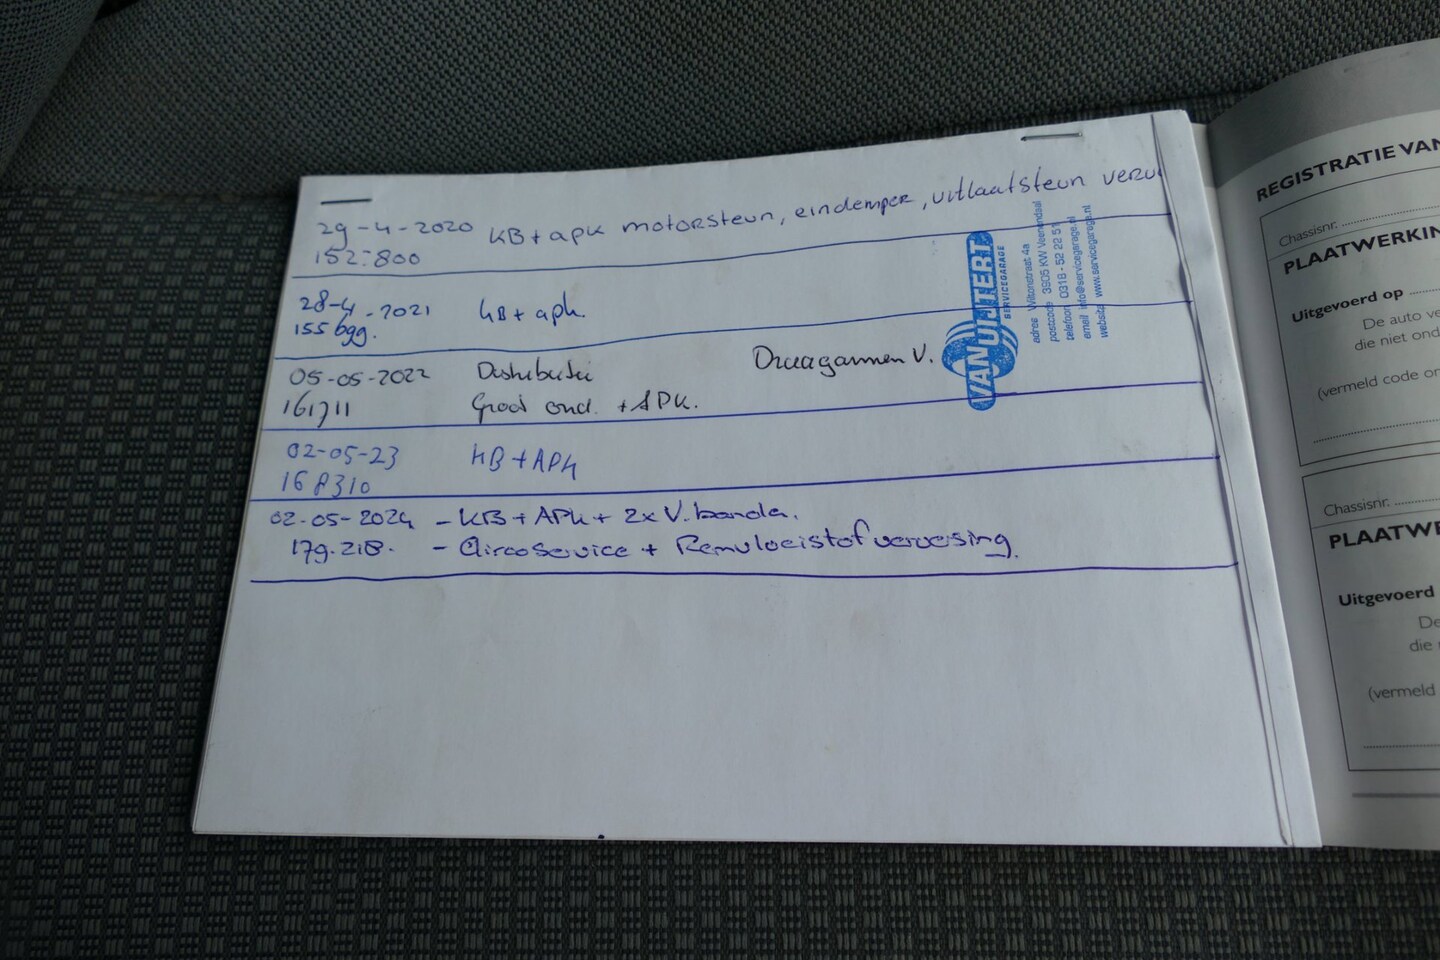 29-4-2020 KB + apk motorsteun, eindemper, uitlaatsteun
152:800
28-4-2021 KB + apk.
155699.
05-05-2022 Distributie Draagarmen V.
161711 Groot ond. + APK.
02-05-23 KB + APK
168310
02-05-2024 - KB + APK + 2x V. banden.
179.218. - Aircoservice + Remvloeistofverversing.
VAN UIJTERT
SERVICEGARAGE
adres Wiltonstraat 4a
postcode 3905 KW Veenendaal
telefoon 0318 - 52 22 51
email info@servicegarage.nl
website www.servicegarage.nl
REGISTRATIE VAN
Chassisnr.
PLAATWERKIN
Uitgevoerd op
De auto ve
die niet ond
(vermeld code on
Chassisnr.
PLAATWE
Uitgevoerd
De
die
(vermeld